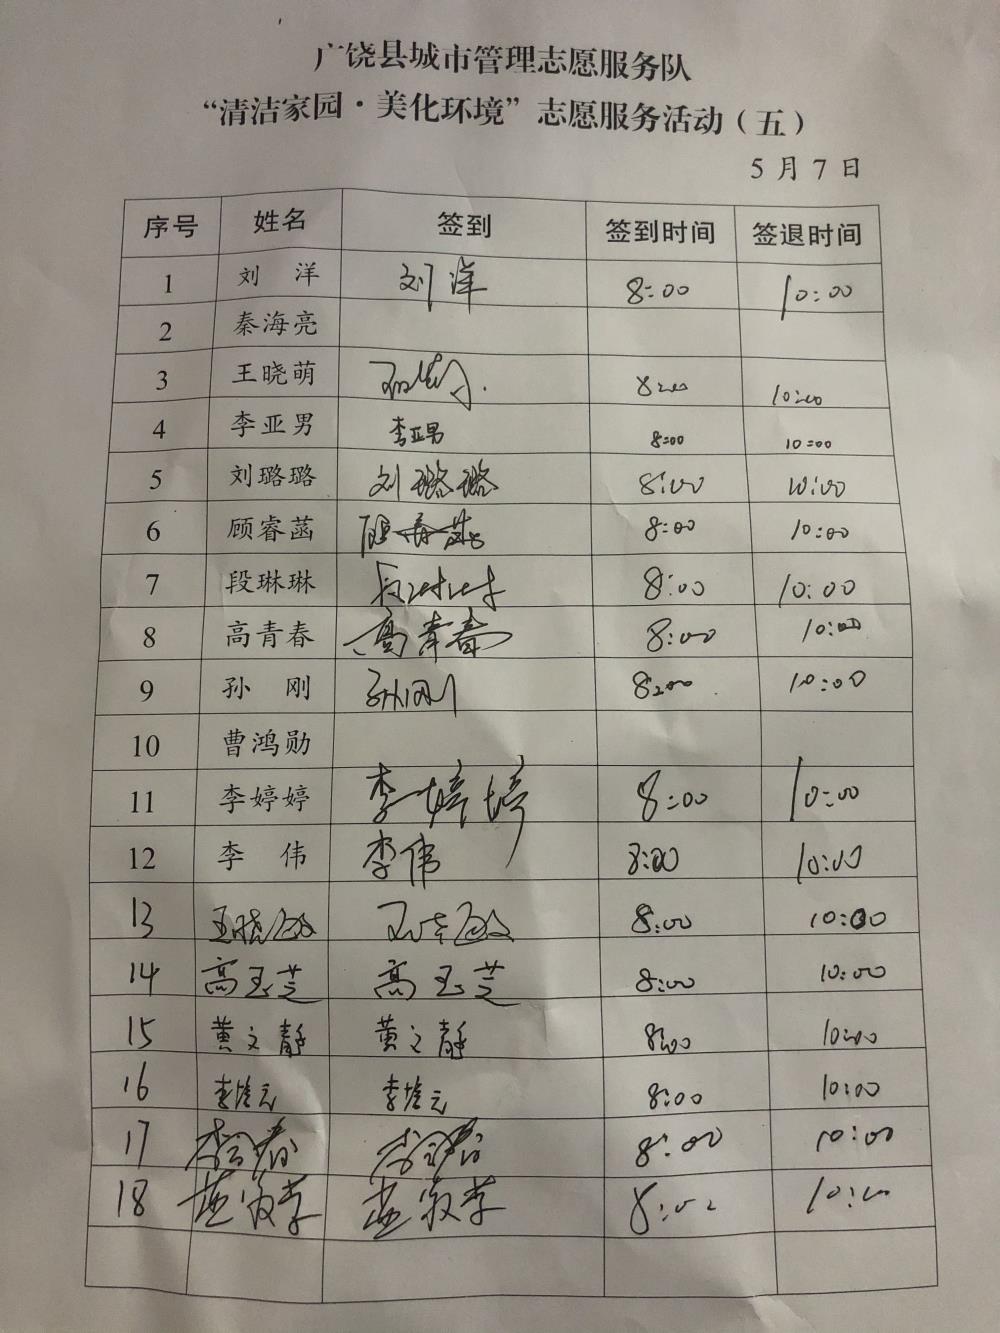 广饶县城市管理志愿服务队
“清洁家园·美化环境”志愿服务活动（五）
5月7日
序号 姓名 签到 签到时间 签退时间
1 刘 洋 刘洋 8:00 10:00
2 秦海亮
3 王晓萌 8:00 10:00
4 李亚男 李亚男 8:00 10:00
5 刘璐璐 刘璐璐 8:00 10:00
6 顾睿菡 8:00 10:00
7 段琳琳 段琳琳 8:00 10:00
8 高青春 高青春 8:00 10:00
9 孙 刚 孙刚 8:00 10:00
10 曹鸿勋
11 李婷婷 李婷婷 8:00 10:00
12 李 伟 李伟 8:00 10:00
13 8:00 10:00
14 高玉芝 高玉芝 8:00 10:00
15 黄文静 黄文静 8:00 10:00
16 8:00 10:00
17 8:00 10:00
18 8:00 10:00